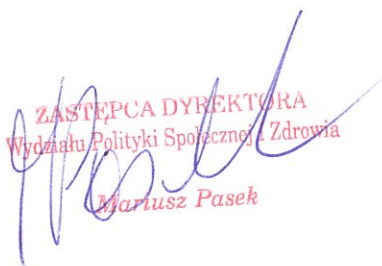 ZASTĘPCA DYREKTORA
Wydziału Polityki Społecznej i Zdrowia
Mariusz Pasek